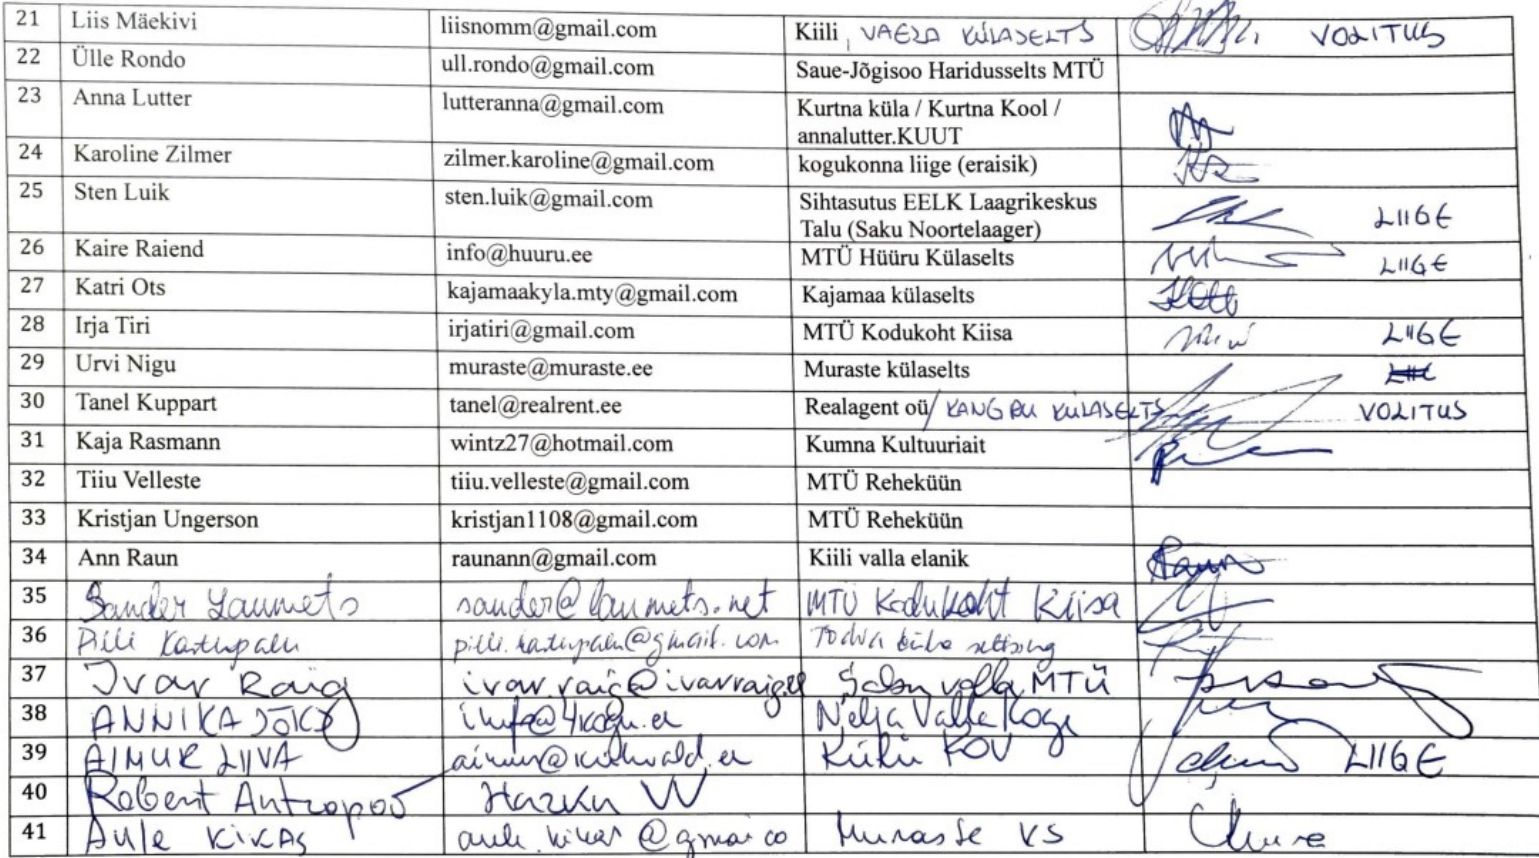 21 Liis Mäekivi liisnomm@gmail.com Kiili, VAELA KÜLASELTS VOLITUS
22 Ülle Rondo ull.rondo@gmail.com Saue-Jõgisoo Haridusselts MTÜ
23 Anna Lutter lutteranna@gmail.com Kurtna küla / Kurtna Kool /
annalutter.KUUT
24 Karoline Zilmer zilmer.karoline@gmail.com kogukonna liige (eraisik)
25 Sten Luik sten.luik@gmail.com Sihtasutus EELK Laagrikeskus
Talu (Saku Noortelaager) LIIGE
26 Kaire Raiend info@huuru.ee MTÜ Hüüru Külaselts LIIGE
27 Katri Ots kajamaakyla.mty@gmail.com Kajamaa külaselts
28 Irja Tiri irjatiri@gmail.com MTÜ Kodukoht Kiisa LIIGE
29 Urvi Nigu muraste@muraste.ee Muraste külaselts
30 Tanel Kuppart tanel@realrent.ee Realagent oü/ KANGRU KÜLASELTS VOLITUS
31 Kaja Rasmann wintz27@hotmail.com Kumna Kultuuriait
32 Tiiu Velleste tiiu.velleste@gmail.com MTÜ Reheküün
33 Kristjan Ungerson kristjan1108@gmail.com MTÜ Reheküün
34 Ann Raun raunann@gmail.com Kiili valla elanik Raun
35 Sander Laumets sander@laumets.net MTÜ Kodukoht Kiisa
36 Pilli Kartupalu pilli.kartupalu@gmail.com Tõdva küla seltsing
37 Ivar Raig ivar.raig@ivarraig.ee valla MTÜ
38 ANNIKA JÕKS info@4kogu.ee Nelja Valla Kogu
39 AIMUR LIIVA KOV LIIGE
40 Robert Antropov Harku V
41 Aule KIKAS aule.kikas@gmai co Muraste KS